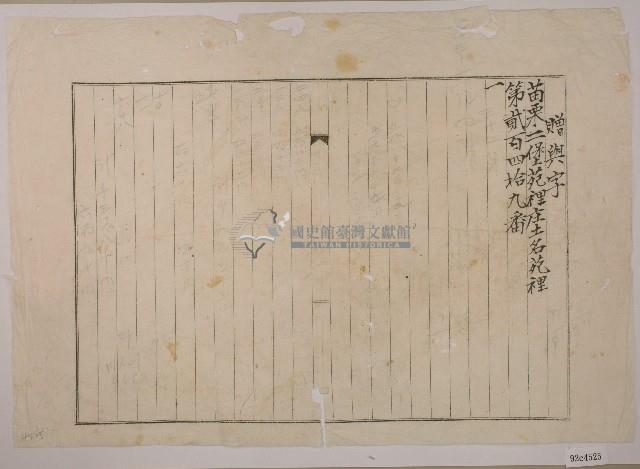 贈與字
苗栗二堡苑裡庄土名苑裡
第貳百四拾九番
一
國史館臺灣文獻館
TAIWAN HISTORICA
92c4525